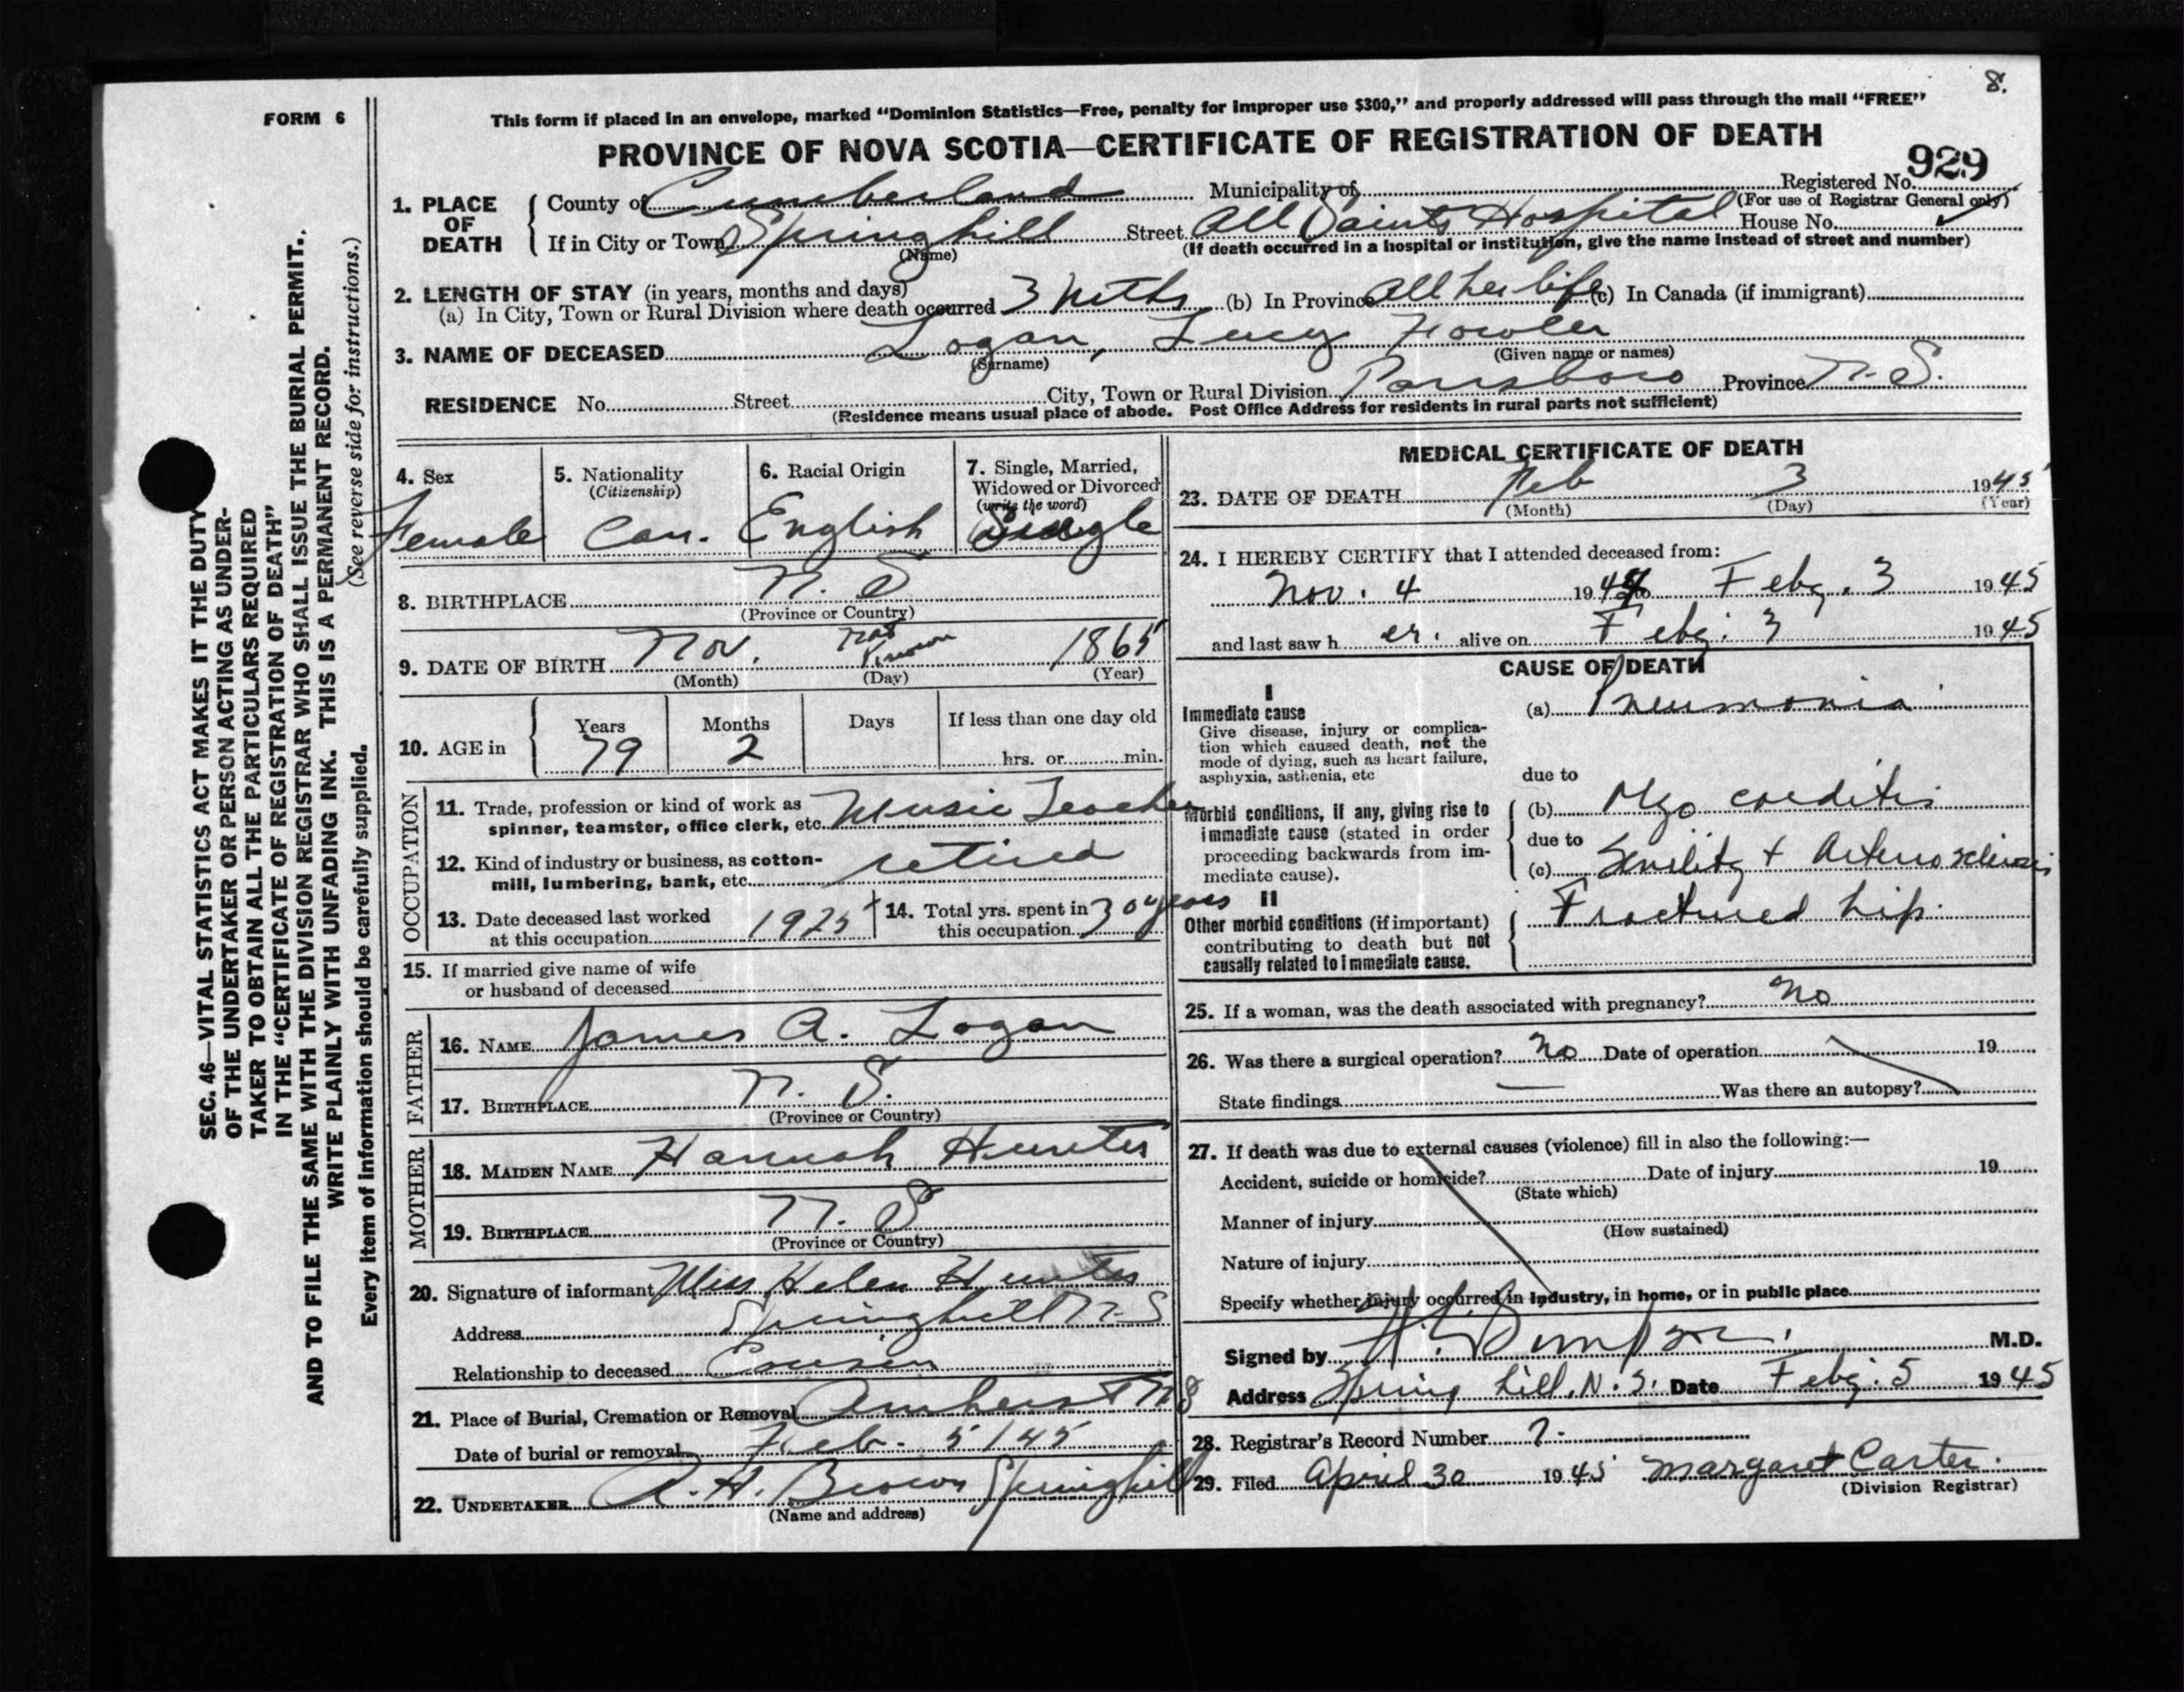 8.
FORM 6
This form if placed in an envelope, marked "Dominion Statistics—Free, penalty for improper use $300," and properly addressed will pass through the mail "FREE"
PROVINCE OF NOVA SCOTIA—CERTIFICATE OF REGISTRATION OF DEATH
929
1. PLACE OF DEATH { County of Cumberland Municipality of Registered No.
(For use of Registrar General only)
If in City or Town Springhill Street All Saints Hospital House No.
(Name) (If death occurred in a hospital or institution, give the name instead of street and number)
2. LENGTH OF STAY (in years, months and days)
(a) In City, Town or Rural Division where death occurred 3 Mths (b) In Province All her life (c) In Canada (if immigrant)
3. NAME OF DECEASED Logan, Lucy Fowler
(Surname) (Given name or names)
RESIDENCE No. Street City, Town or Rural Division Parrsboro Province N.S.
(Residence means usual place of abode. Post Office Address for residents in rural parts not sufficient)
4. Sex 5. Nationality 6. Racial Origin 7. Single, Married,
(Citizenship) Widowed or Divorced
(write the word)
Female Can. English Single
8. BIRTHPLACE N. S
(Province or Country)
9. DATE OF BIRTH Nov. Not Known 1865
(Month) (Day) (Year)
10. AGE in { Years Months Days If less than one day old
79 2 hrs. or min.
OCCUPATION
11. Trade, profession or kind of work as
spinner, teamster, office clerk, etc. Music Teacher
12. Kind of industry or business, as cotton-
mill, lumbering, bank, etc. retired
13. Date deceased last worked
at this occupation 1925
14. Total yrs. spent in
this occupation 30 years
15. If married give name of wife
or husband of deceased
FATHER
16. NAME James A. Logan
17. BIRTHPLACE N. S.
(Province or Country)
MOTHER
18. MAIDEN NAME Hannah Hunter
19. BIRTHPLACE N. S
(Province or Country)
20. Signature of informant Miss Helen Hunter
Address Springhill N-S
Relationship to deceased Cousin
21. Place of Burial, Cremation or Removal Amherst NS
Date of burial or removal Feb. 5 / 45
22. UNDERTAKER A. H. Brown Springhill
(Name and address)
MEDICAL CERTIFICATE OF DEATH
23. DATE OF DEATH Feb 3 1945
(Month) (Day) (Year)
24. I HEREBY CERTIFY that I attended deceased from:
Nov. 4 1944 to Feby. 3 1945
and last saw h er. alive on Feby. 3 1945
CAUSE OF DEATH
I
Immediate cause
Give disease, injury or complica-
tion which caused death, not the
mode of dying, such as heart failure,
asphyxia, asthenia, etc
(a) Pneumonia
due to
Morbid conditions, if any, giving rise to
immediate cause (stated in order
proceeding backwards from im-
mediate cause).
(b) Myo carditis
due to
(c) Senility + Arterio sclerosis
II
Other morbid conditions (if important)
contributing to death but not
causally related to immediate cause.
Fractured hip.
25. If a woman, was the death associated with pregnancy? No
26. Was there a surgical operation? No Date of operation 19
State findings — Was there an autopsy?
27. If death was due to external causes (violence) fill in also the following:—
Accident, suicide or homicide? Date of injury 19
(State which)
Manner of injury
(How sustained)
Nature of injury
Specify whether injury occurred in industry, in home, or in public place
Signed by M.D.
Address Spring hill. N. S. Date Feby. 5 1945
28. Registrar's Record Number 7.
29. Filed April 30 1945 Margaret Carter.
(Division Registrar)
SEC. 46—VITAL STATISTICS ACT MAKES IT THE DUTY
OF THE UNDERTAKER OR PERSON ACTING AS UNDER-
TAKER TO OBTAIN ALL THE PARTICULARS REQUIRED
IN THE "CERTIFICATE OF REGISTRATION OF DEATH"
AND TO FILE THE SAME WITH THE DIVISION REGISTRAR WHO SHALL ISSUE THE BURIAL PERMIT.
WRITE PLAINLY WITH UNFADING INK. THIS IS A PERMANENT RECORD.
(See reverse side for instructions.)
Every item of information should be carefully supplied.